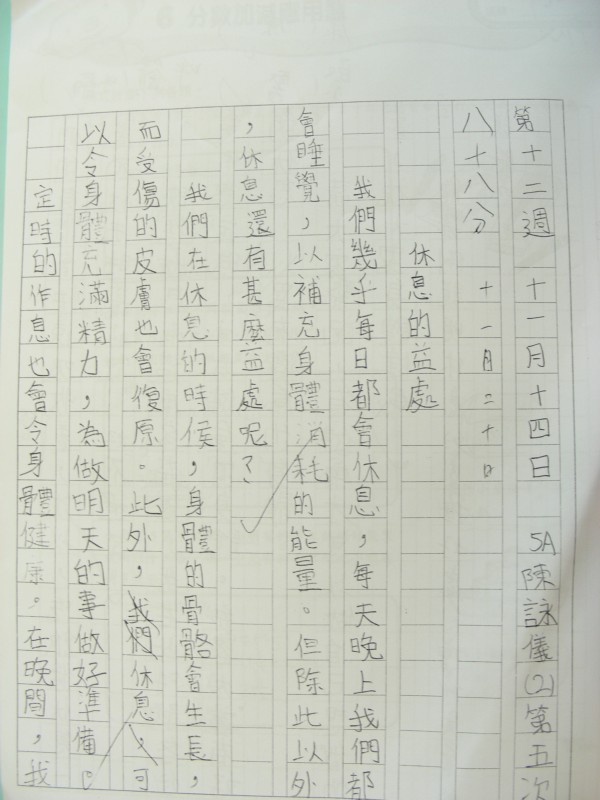 第十二週 十一月十四日 5A陳詠儀(2)第五次
八十八分 十一月二十日
休息的益處
我們幾乎每日都會休息，每天晚上我們都
會睡覺，以補充身體消耗的能量。但除此以外
，休息還有甚麼益處呢？
我們在休息的時侯，身體的骨骼會生長，
而受傷的皮膚也會復原。此外，我們休息，可
以令身體充滿精力，為做明天的事做好準備。
定時的作息也會令身體健康。在晚間，我